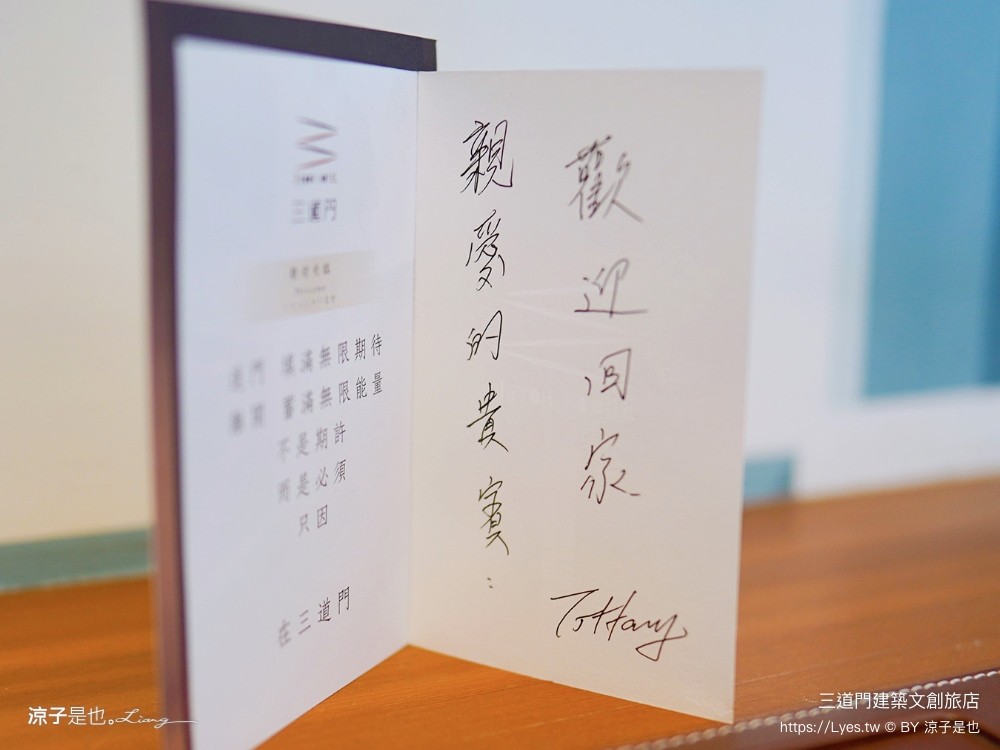 三道門
填滿無限期待
蓄滿無限能量
不是期許
而是必須
只因
在三道門
親愛的貴賓：
歡迎回家
Tiffany
涼子是也。Liang
三道門建築文創旅店
https://Lyes.tw © BY 涼子是也